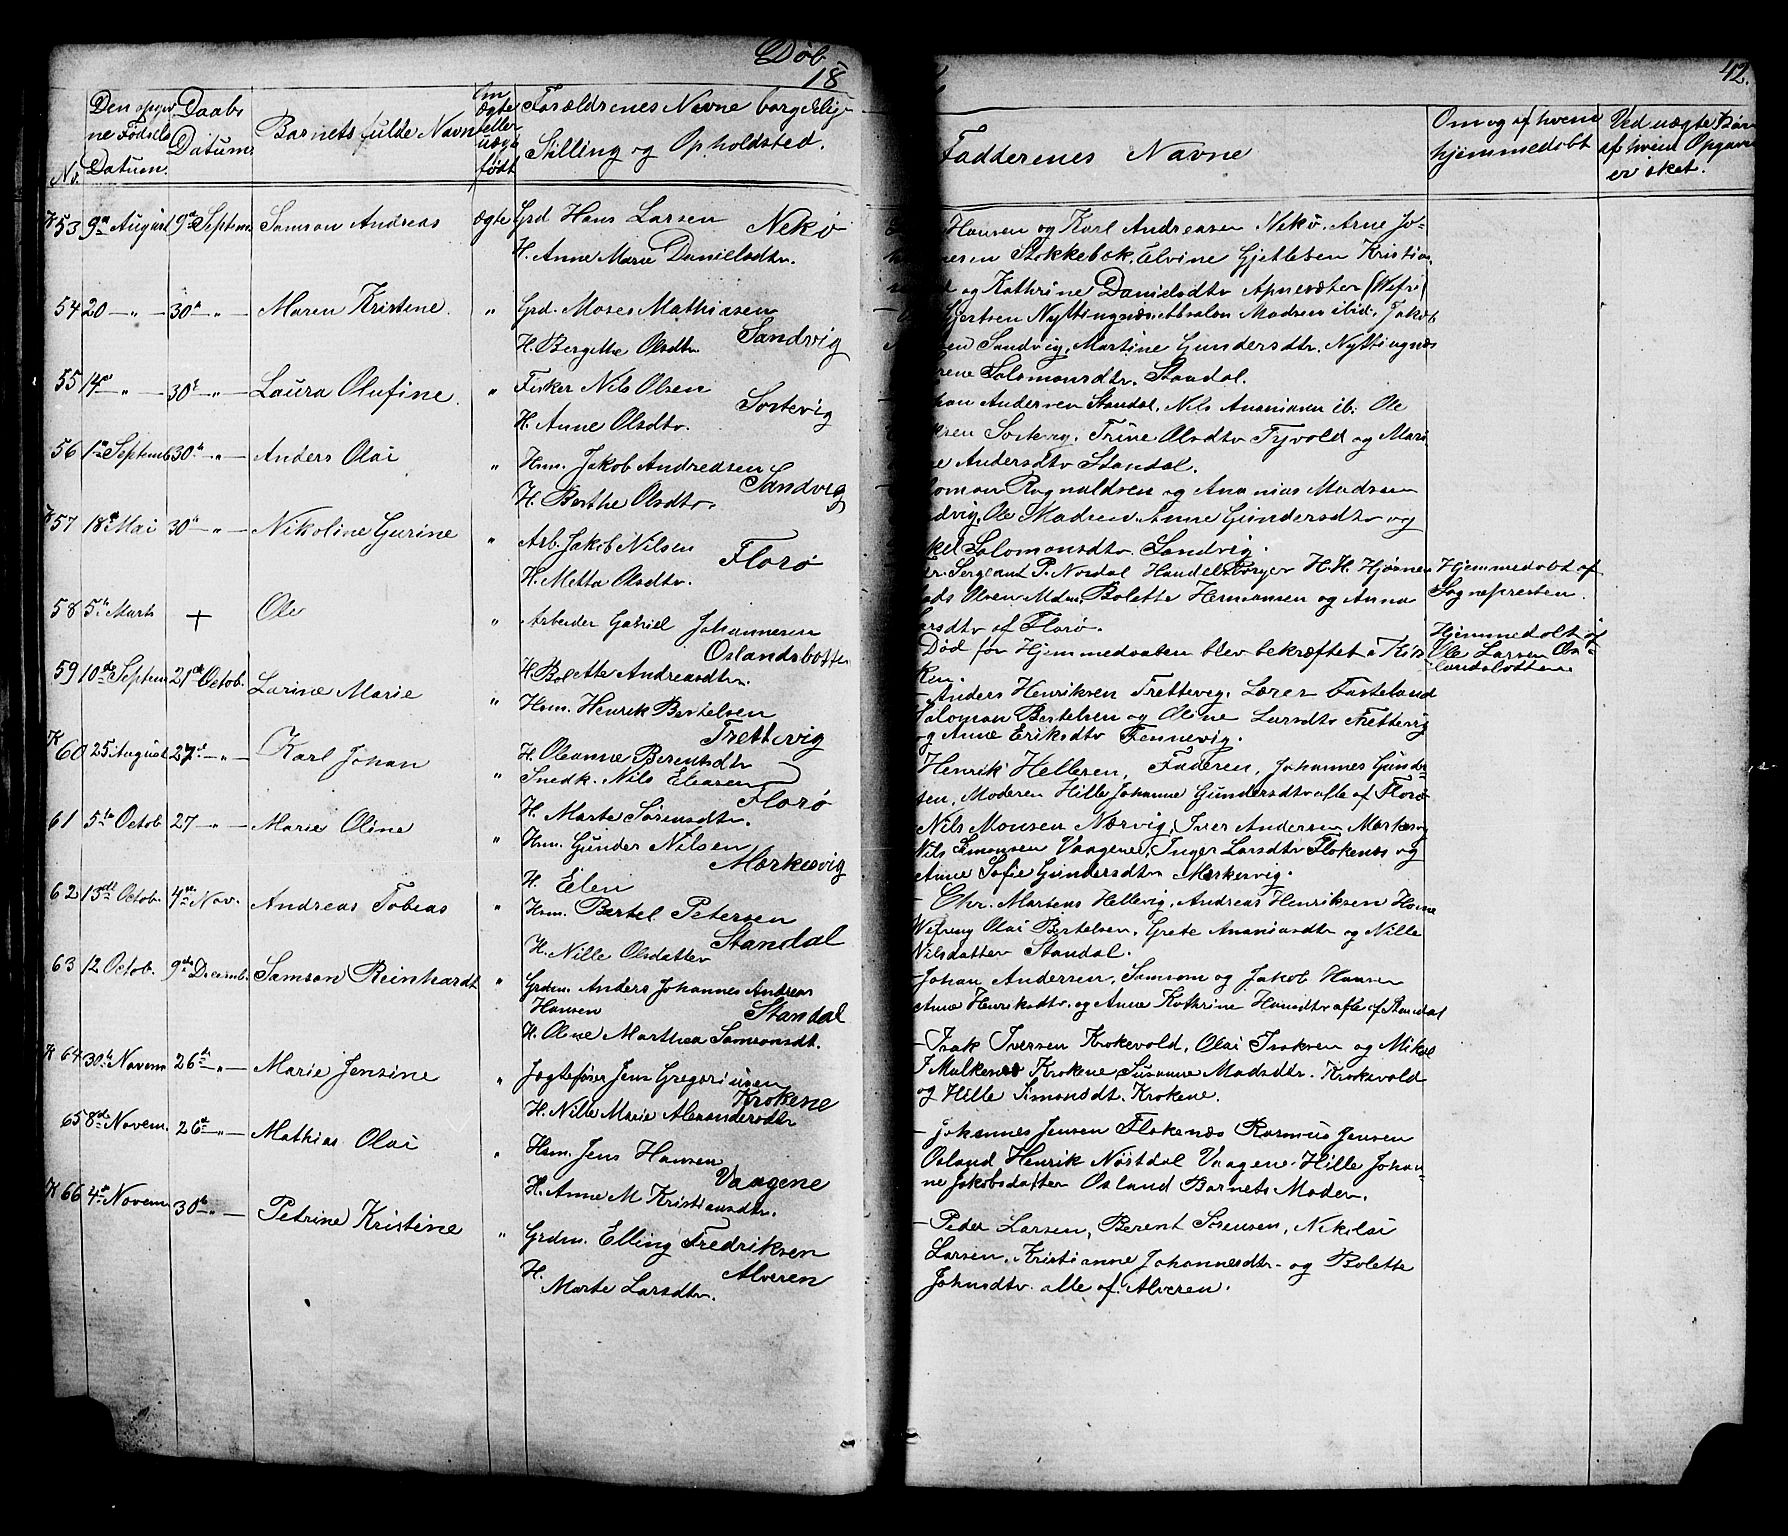 Døb
18
42.
No.
Den opgivne Fødsels Datum.
Daabs Datum.
Barnets fulde Navn
Om ægte eller uægte født
Forældrenes Navne borgerlig Stilling og Opholdsted.
Faddernes Navne
Om og af hvem hjemmedøbt
Ved uægte Børn af hvem Opgave er sket.
K 53 9de August 9de Septem. Samson Andreas ægte Grd Hans Larsen Nekø
H. Anne Marie Danielsdtr.
Hansen og Karl Andreasen Nekø. Arne Jo-
Stokkebøk. Elvine Gjetlesen Kristian
og Kathrine Danielsdtr Apnesæter (Vefr)
54 20 -"- 30te -"- Maren Kristine. " Grd. Moses Mathiasen
Sandvig
H. Bergitte Olsdtr.
Gjertsen Nyttingnæs. Absalon Madsen ibid. Jakob
Sandvig, Martine Gundersdtr. Nyttingnæs
Salomonsdtr. Standal.
55 14de -"- 30te -"- Laura Olufine. " Fisker Nils Olsen
Sortevig
H. Anne Olsdtr.
Andersen Standal, Nils Ananiasen ib. Ole
Sortevig. Trine Olsdtr Tyvold og Mari
Andersdtr Standal.
56 1ste Septemb 30te -"- Anders Olai " Hsm. Jakob Andreasen
Sandvig
H. Berthe Olsdtr.
Ragnaldsen og Ananias Madsen
Ole Madsen. Anne Gundersdtr og
Salomonsdtr. Sandvig.
K 57 18de Mai 30te -"- Nikoline Gurine " Arb. Jakob Nilsen
Florø
H. Metta Olsdtr.
Sergeant P. Nordal Handelsborger H. H. Hjørnev
Olsen Mdm. Bolette Hermansen og Anna
af Florø.
Hjemmedøbt af
Sognepresten.
58 5te Marts + Ole " Arbeider Gabriel Johannesen
Oslandsbotten
H. Bolette Andreasdtr.
Død før Hjemmedaaben blev bekræftet i Kir
ken.
Hjemmedøbt af
Ole Larsen Os-
landsbotten
59 10de Septem 21de Octob. Larine Marie " Hsm. Henrik Bertelsen
Trettevig
H. Oleanne Berentsdtr
- Anders Henriksen Trettevig. Lærer Fasteland
Saloman Bertelsen og Olene Larsdtr Trettevig
og Anne Eriksdtr Tennevig.
K 60 25 August 27de -"- Karl Johan " Snedk. Nils Eliasen
Florø
H. Marte Sørensdtr.
Henrik Helleren, Faderen, Johannes Gunder
sen, Moderen Hille Johanne Gundersdtr alle af Florø
61 5te Octob 27 -"- Marie Oline " Hsm. Gunder Nilsen
Markesvig
H. Elen
Nils Monsen Nærvig, Iver Andersen Markesv
Nils Simonsen Vaagene, Inger Larsdtr Flokenæs og
Anne Sofie Gundersdtr Markesvig.
62 13de Octob. 4de Nov. Andreas Tobias " Hsm. Bertel Petersen
Standal
H. Nille Olsdatter
- Chr. Martens Hellevig, Andreas Henriksen Horne
Vefring Olai Bertelsen, Grete Ananiasdtr og Nille
Nilsdatter Standal.
63 12 Octob. 9de Decemb. Samson Reinhardt " Grdm. Anders Johannes Andreas
Hansen Standal
H. Oline Marthea Samsonsdt.
- Johan Andersen, Samsom og Jakob Hansen
Anne Henriksdtr. og Anne Kathrine Hansdtr alle af Standal
K 64 30te Novem 26de -"- Marie Jensine " Jægtefører Jens Gregoriusen
Krokene
H. Nille Marie Alexandersdtr
- Isak Iversen Krokevold, Olai Isaksen og Mikal
J Mulkenæs Krokene, Susanne Madsdtr. Krokevold
og Hille Simonsdt. Krokene.
65 8de Novem. 26de -"- Mathias Olai " Hsm. Jens Hansen
Vaagene
H. Anne M Kristiansdtr.
- Johannes Jensen Flokenæs Rasmus Jensen
Osland Henrik Nøstdal Vaagene. Hille Johan-
ne Jakobsdatter Osland Barnets Moder.
K 66 4de Novem 30te -"- Petrine Kristine " Grdm. Elling Fredriksen
Alveren
H. Marte Larsdtr.
- Peder Larsen, Berent Sørensen, Nikolai
Larsen, Kristianne Johannesdtr og Bolette
Johnsdtr. alle af Alveren.